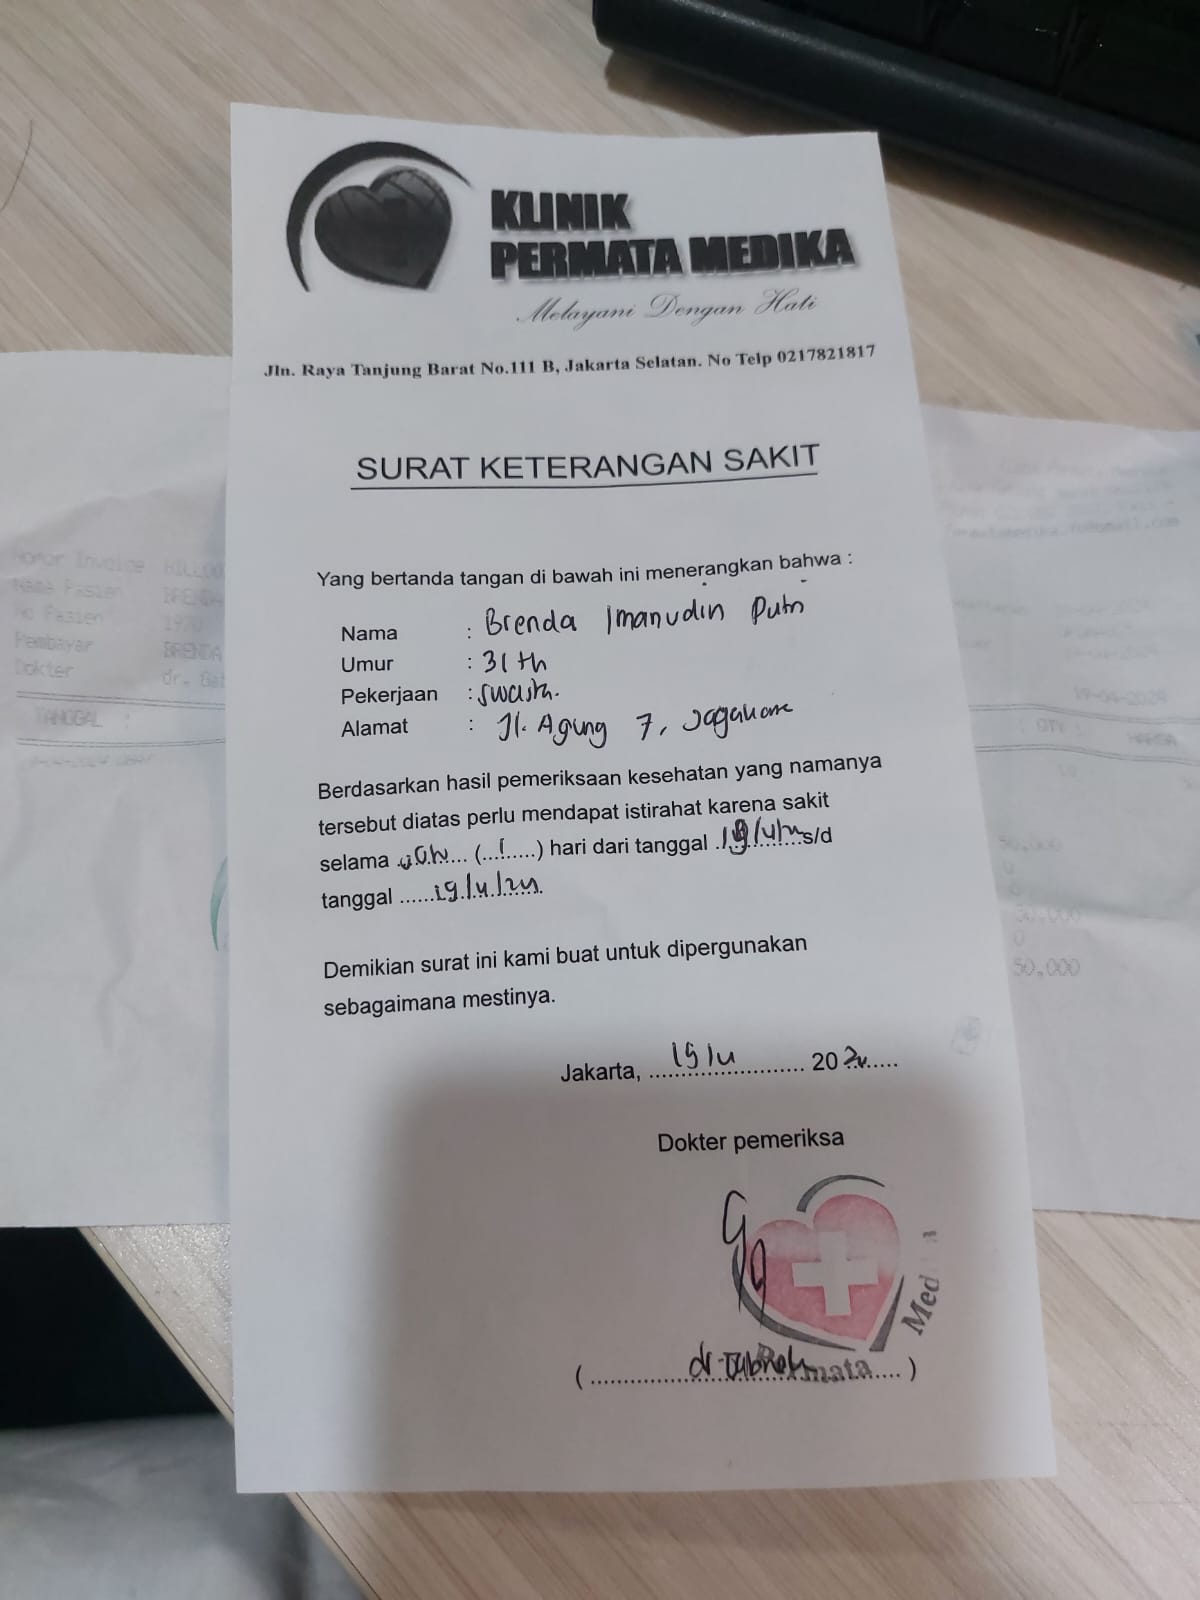 KLINIK
PERMATA MEDIKA
Melayani Dengan Hati
Jln. Raya Tanjung Barat No.111 B, Jakarta Selatan. No Telp 0217821817
SURAT KETERANGAN SAKIT
Yang bertanda tangan di bawah ini menerangkan bahwa :
Nama : Brenda Imanudin Putri
Umur : 31 th
Pekerjaan : swasta.
Alamat : Jl. Agung 7,
Berdasarkan hasil pemeriksaan kesehatan yang namanya
tersebut diatas perlu mendapat istirahat karena sakit
selama ... (...1.....) hari dari tanggal .19/4/24.......s/d
tanggal ......19/4/24.
Demikian surat ini kami buat untuk dipergunakan
sebagaimana mestinya.
Jakarta, 19/4 2024
Dokter pemeriksa
Medika
Permata
(..................dr..........)
Nomor Invoice
Nama Pasien BRENDA
No Pasien
Pembayar BRENDA
Dokter dr.
TANGGAL :
19-04-2024
QTY HARGA
50,000
0
50,000
0
50,000